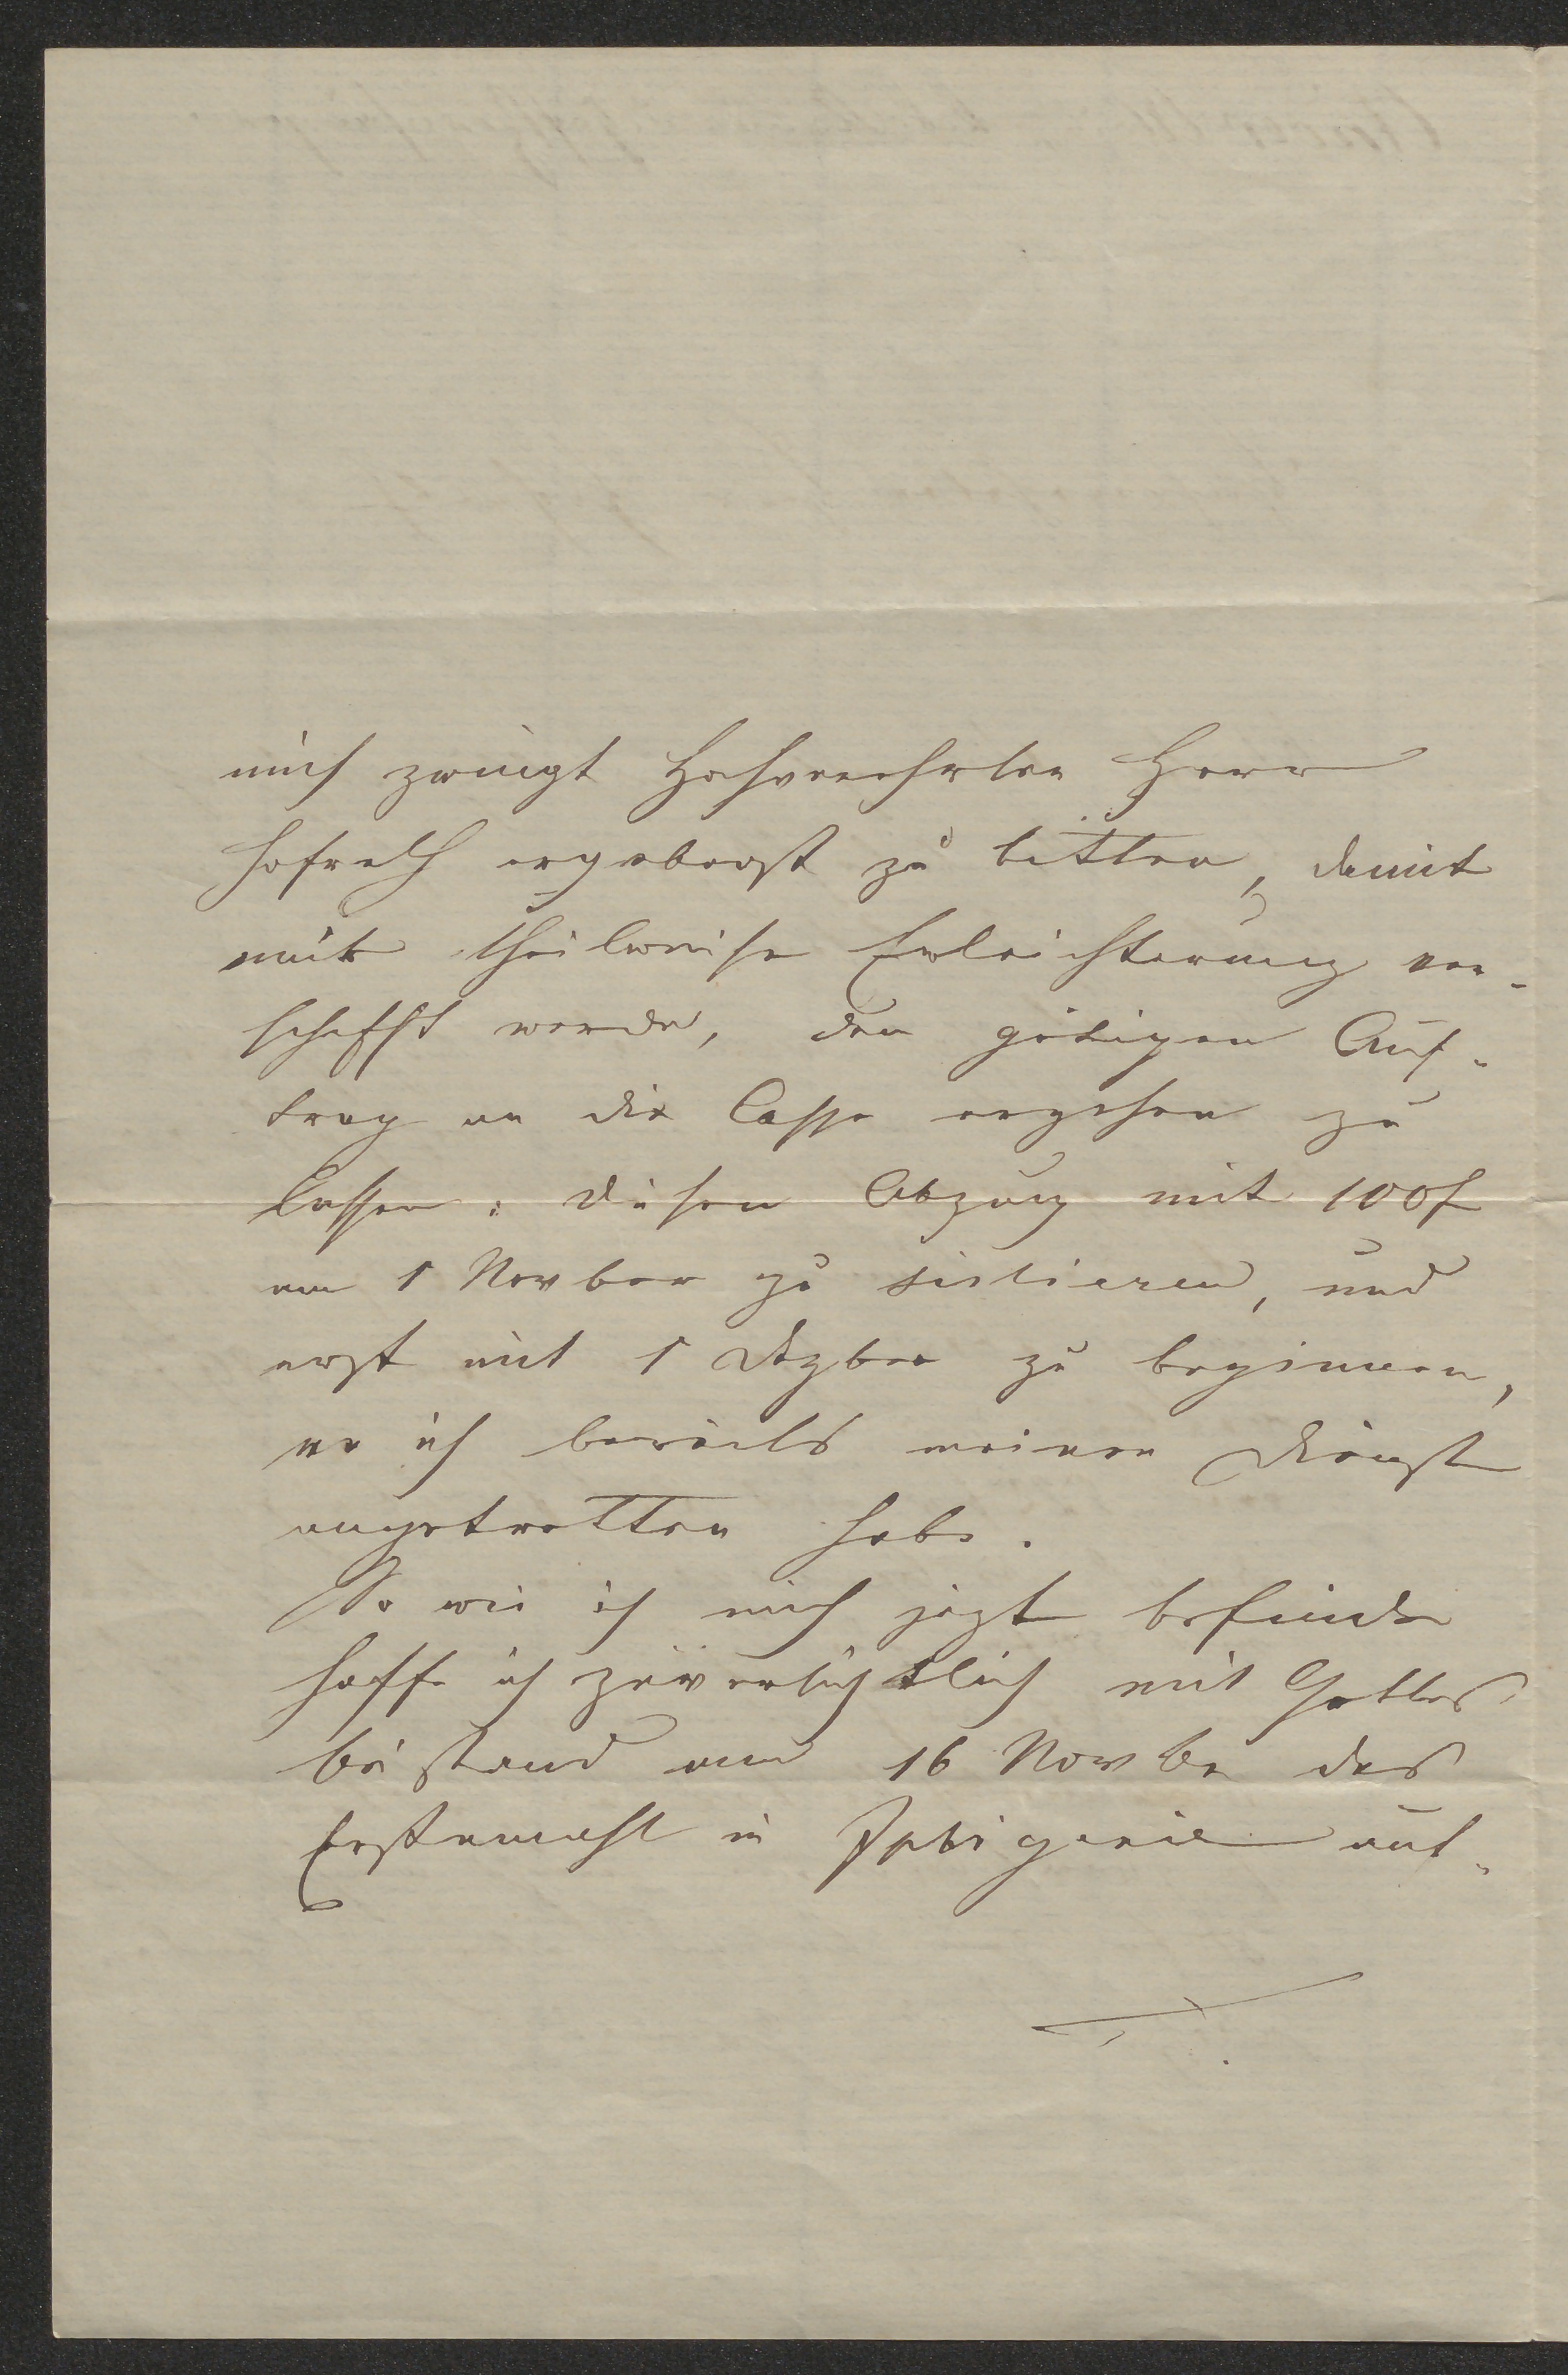 mich zwingt Hochverehrten Herrn
Hofrath ergebenst zu bitten, damit
mir theilweise Erleichterung ver-
schafft werde, den gütigen Auf-
trag an die Casse ergehen zu
lassen: diesen Abzug mit 100f
am 1 Novber zu sistieren, und
erst mit 1 Dezber zu beginnen,
wo ich bereits meinen Dienst
angetretten habe.
So wie ich mich jezt befinde
hoffe ich zuversichtlich mit Gottes
beistand am 16 Novbe das
Erstemahl in Iphigenie auf-